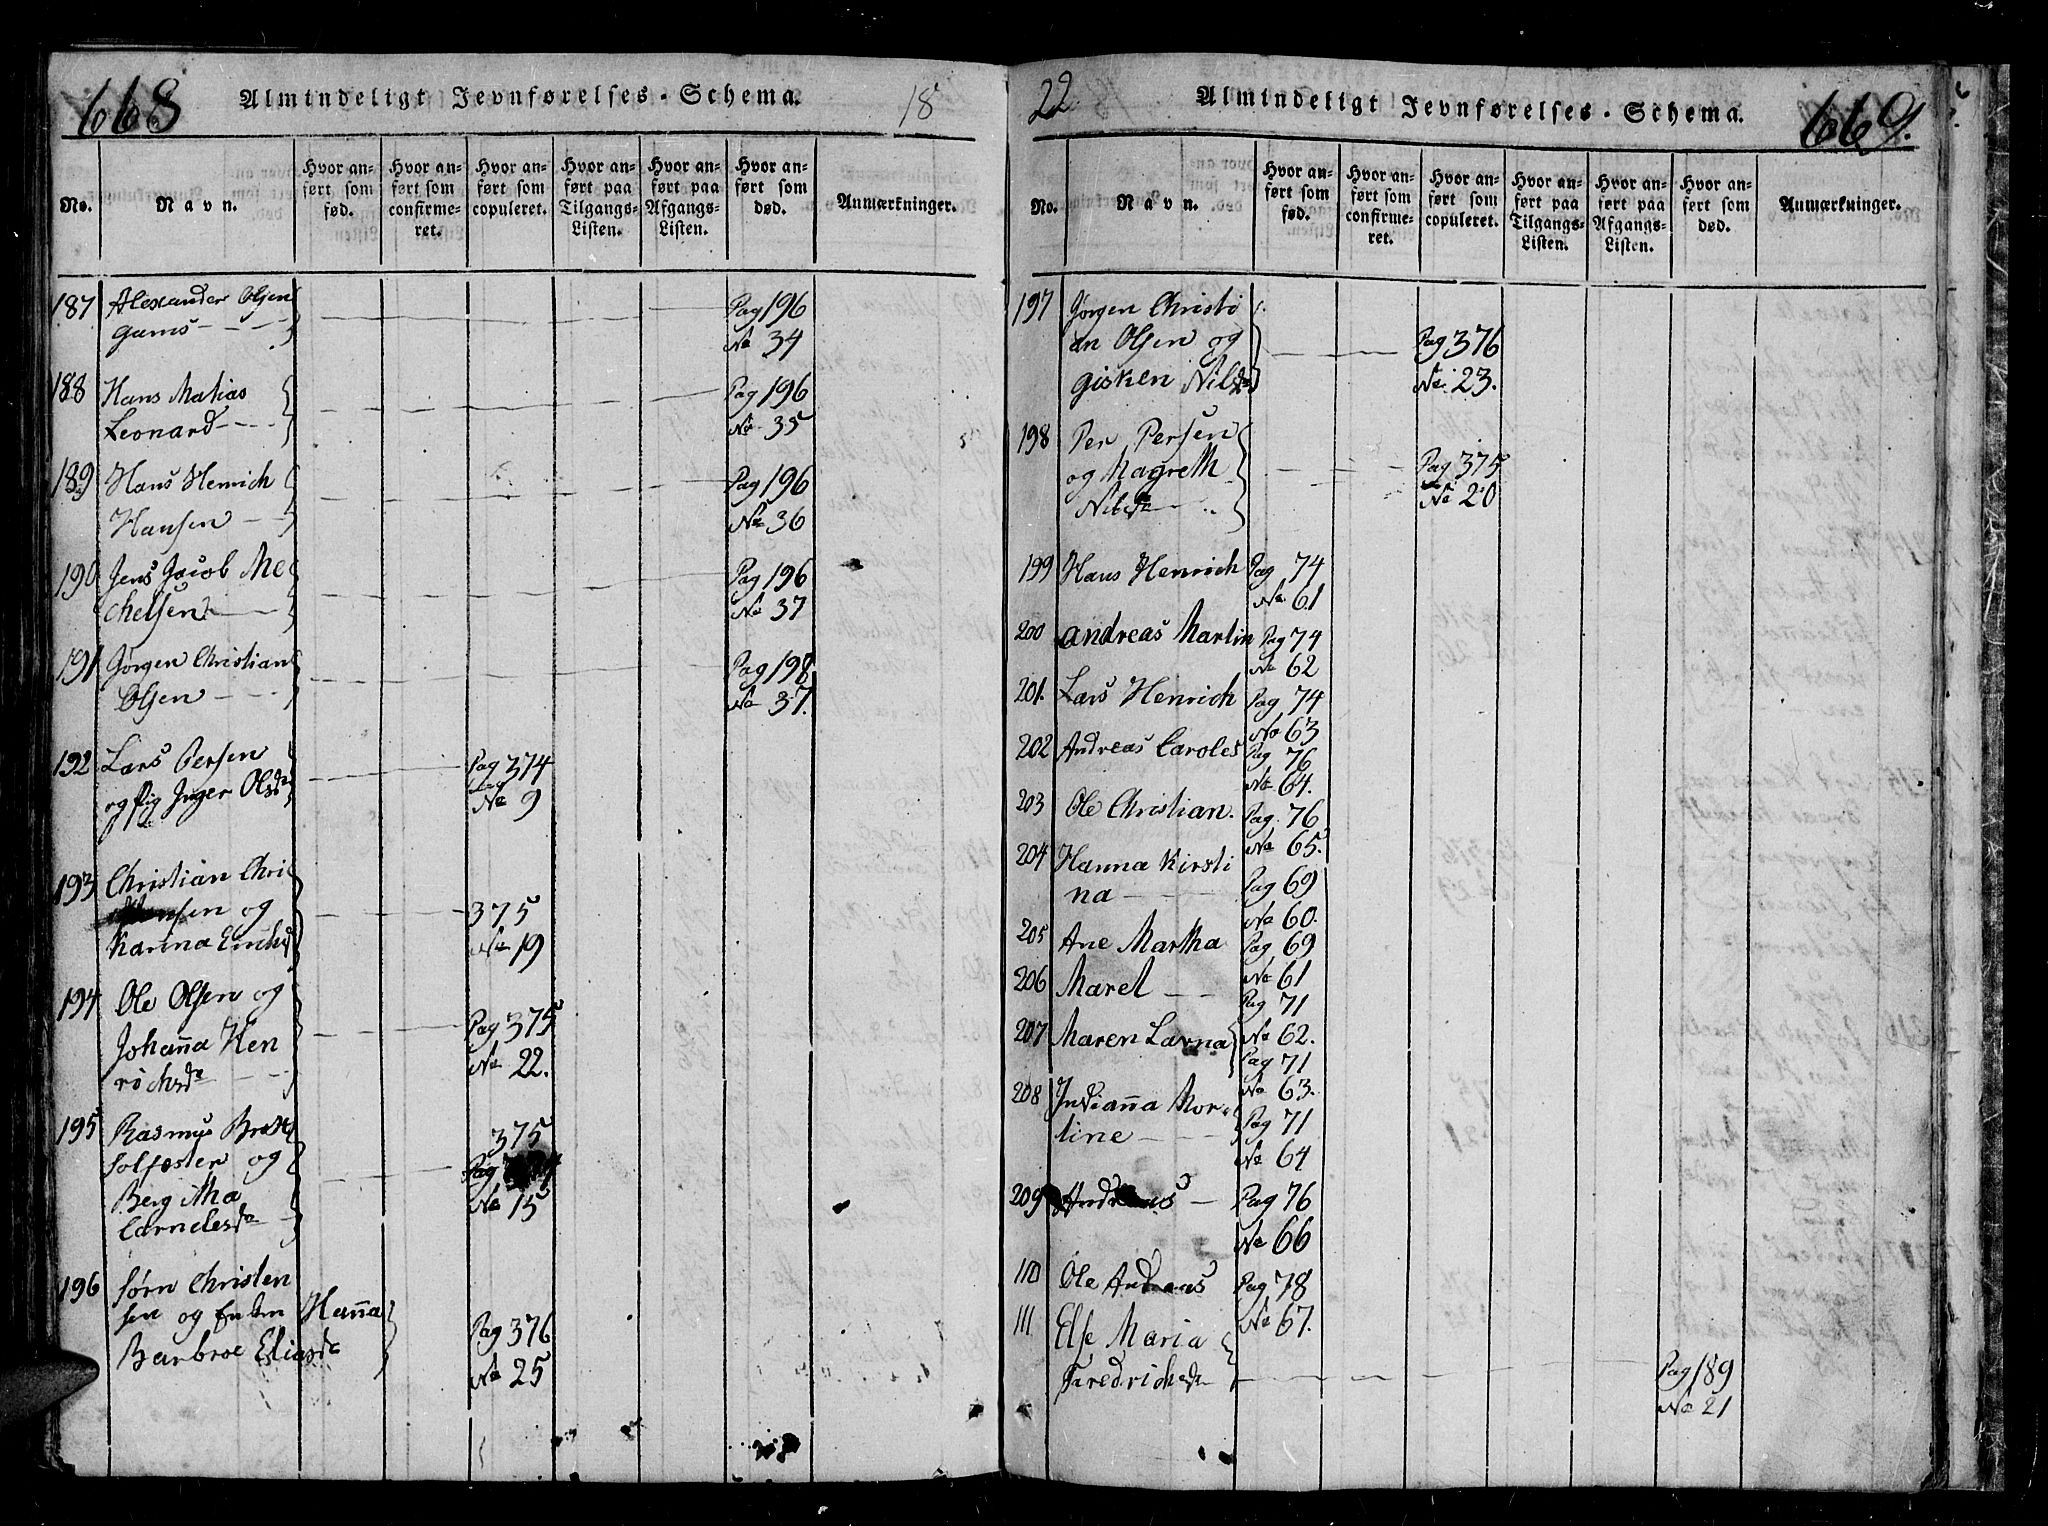 668 Almindeligt Jevnførelses-Schema. 18
No. Navn. Hvor anført som fød. Hvor anført som confirmeret. Hvor anført som copuleret. Hvor anført paa Tilgangs-Listen. Hvor anført paa Afgangs-Listen. Hvor anført som død. Anmærkninger.
187 Alexander Olsen Pag 196
No 34
188 Hans Matias Pag 196
Leonard No 35
189 Hans Henrich Pag 196
Hansen No 36
190 Jens Jacob Me Pag 196
chelsen No 37
191 Jørgen Christian Pag 198
Olsen No 37.
192 Lars Persen Pag 374
og Pig Inger Olsdr No 9
193 Christian Chri
og 375
Karina No 19
194 Ole Olsen og
Johanna Hen Pag 375
richsdr No 22.
195 Rasmus 375
og Pag
Berg No 15
196 Sørn Christen
sen og Hanna Pag 376
Barbroe Eliasdr No 25
22 Almindeligt Jevnførelses-Schema. 669.
No. Navn. Hvor anført som fød. Hvor anført som confirmeret. Hvor anført som copuleret. Hvor anført paa Tilgangs-Listen. Hvor anført paa Afgangs-Listen. Hvor anført som død. Anmærkninger.
197 Jørgen Christi
an Olsen og Pag 376
Gisken Nilsdr No. 23.
198 Per Persen
og Magreth Pag 375
Nilsdr No 20
199 Hans Henrich Pag 74
No 61
200 Andreas Martin Pag 74
No 62
201. Lars Henrich Pag 74
No 63
202 Andreas Caroles Pag 76
No 64.
203 Ole Christian. Pag. 76
No 65.
204 Hanna Kirsti
na Pag 69
No 60.
205 Ane Martha Pag 69
No 61
206 Maret Pag 71
No 62.
207 Maren Lavna Pag 71
No 63.
208 Indianna Mor
tine Pag 71
No 64
209 Andreas Pag 76
No 66
110 Ole Andreas Pag 78
No 67.
111 Else Maria
Fredrichsdr Pag 189
No 21